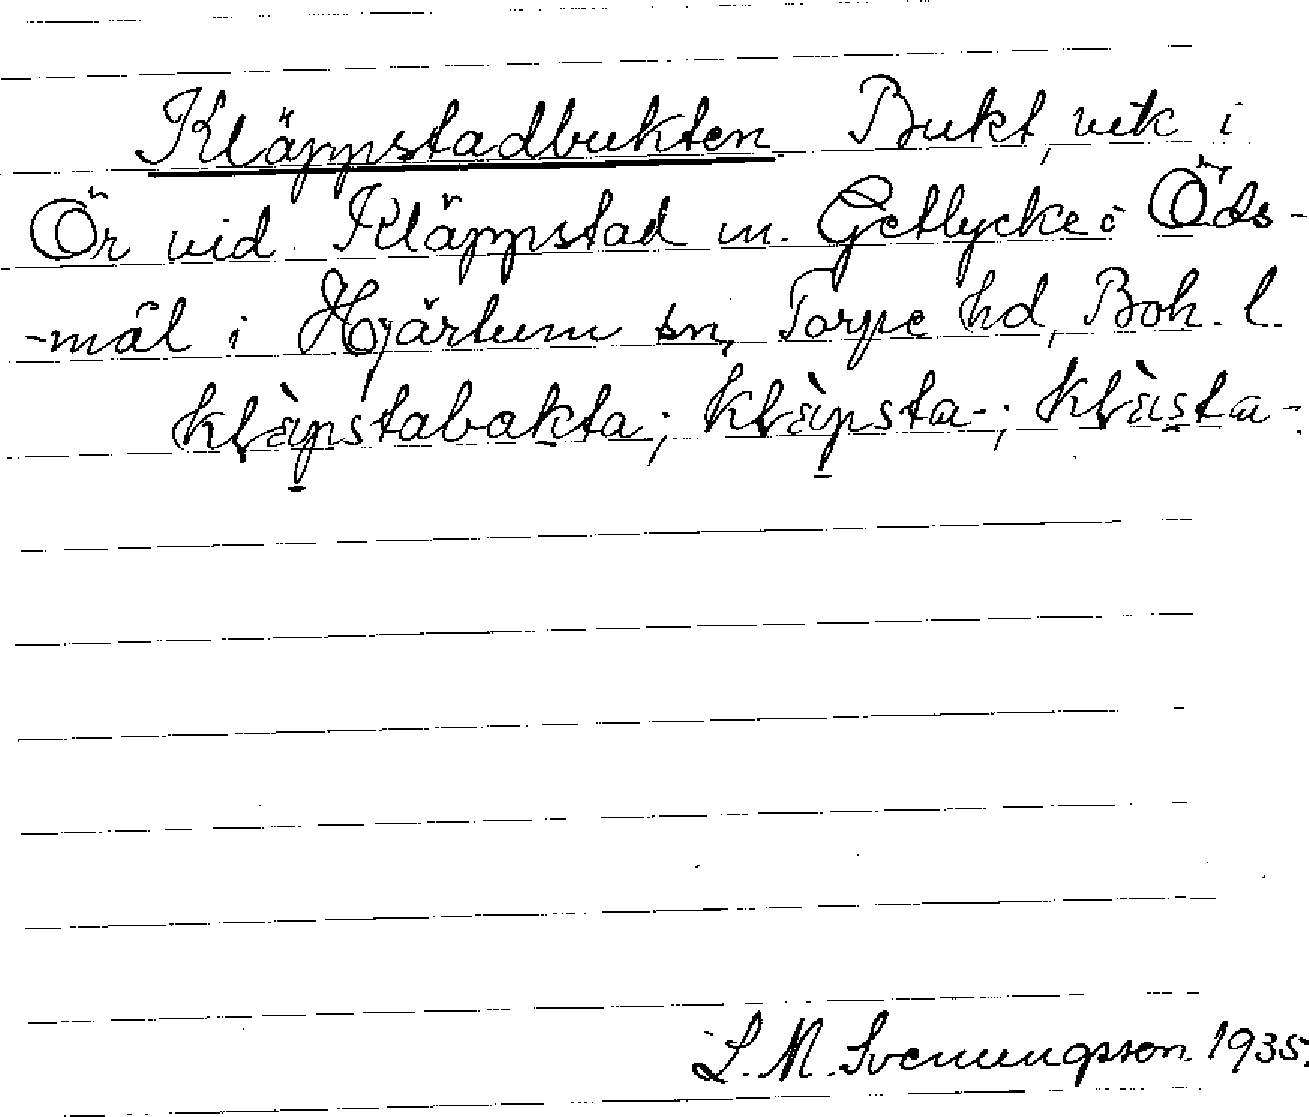 Kläppstadbukten Bukt, vik i
Ör vid Kläppstad m. Getlycke i Öds-
-mål i Hjärtum sn, Torpe hd, Boh. l.
klὰpstabakta; klὰpsta-; klὰsta-
L. M. Svenungsson 1935.